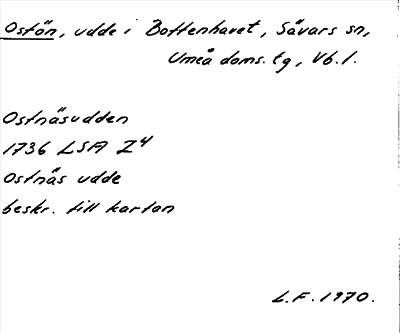 Ostön, udde i Bottenhavet, Sävars sn,
Umeå doms. tg, Vb. l.
Ostnäsudden
1736 LSA Z4
Ostnäs udde
beskr. till kartan
L.F. 1970.